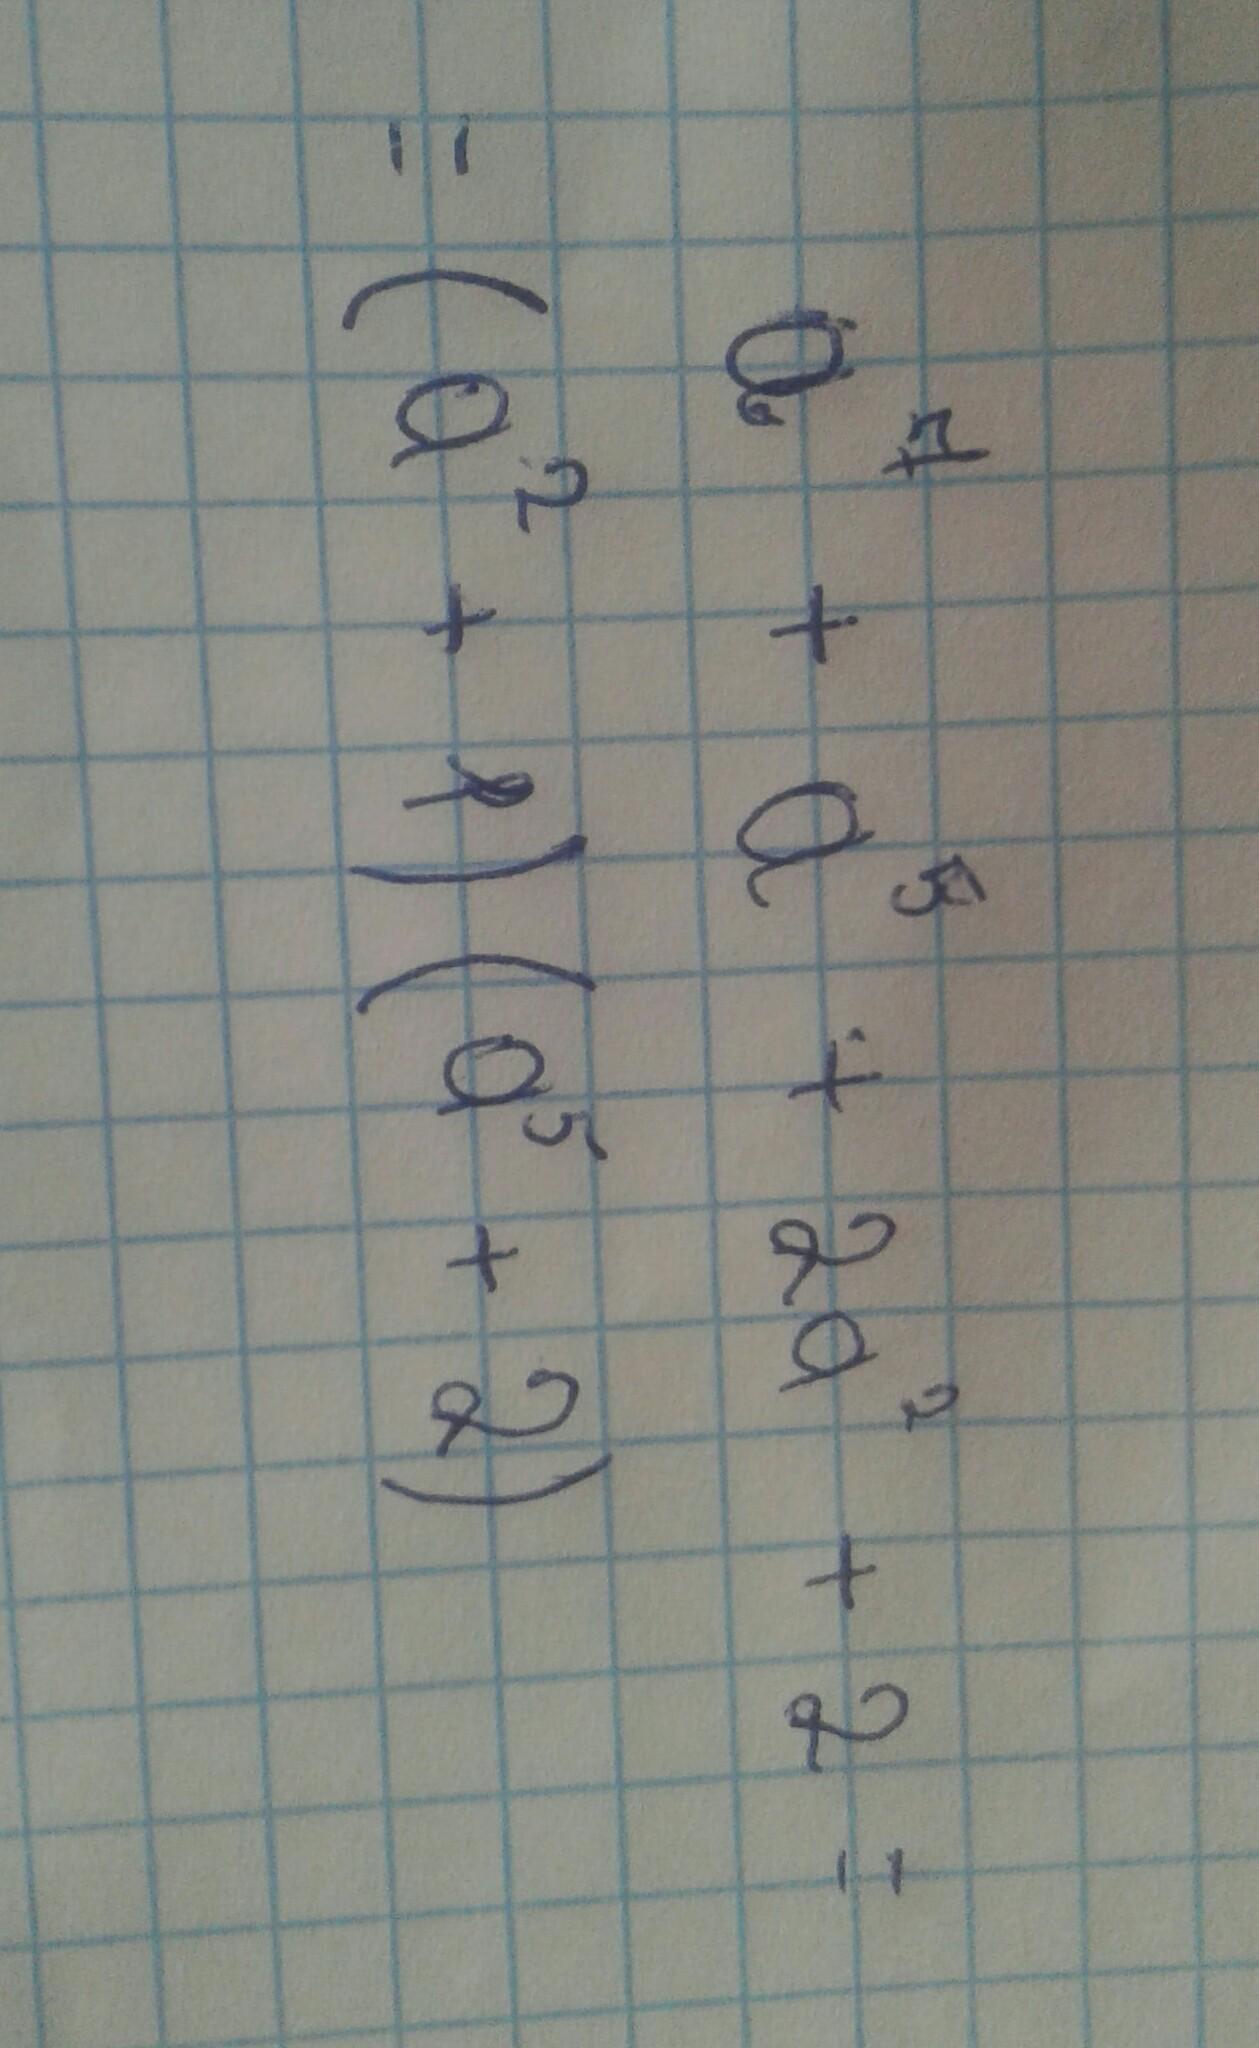 a⁷ + a⁵ + 2a² + 2 =
= (a² + 1)(a⁵ + 2)